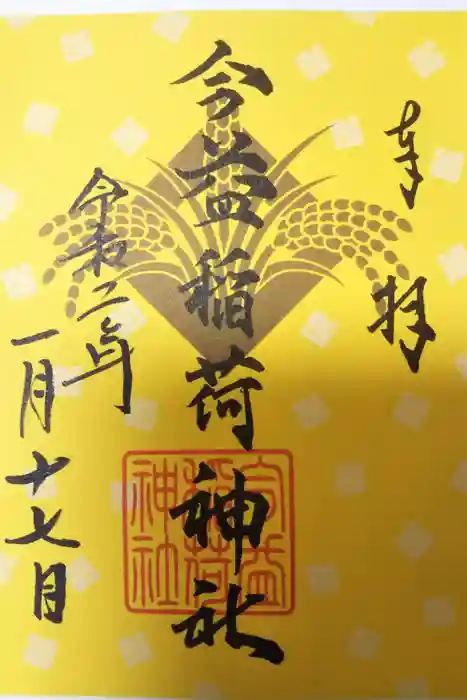 奉拝
今益稲荷神社
令和二年
一月十七日
稲荷
神社